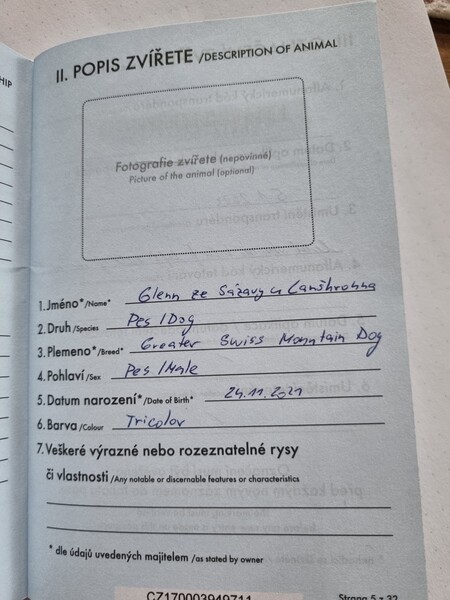 II. POPIS ZVÍŘETE /DESCRIPTION OF ANIMAL
Fotografie zvířete (nepovinné)
Picture of the animal (optional)
1. Jméno*/Name* Glenn ze Sázavy u Lanškrouna
2. Druh/Species Pes / Dog
3. Plemeno*/Breed* Greater Swiss Mountain Dog
4. Pohlaví/Sex Pes / Male
5. Datum narození*/Date of Birth* 24.11.2021
6. Barva/Colour Tricolor
7. Veškeré výrazné nebo rozeznatelné rysy
či vlastnosti/Any notable or discernable features or characteristics
* dle údajů uvedených majitelem /as stated by owner
CZ170003949711
Strana 5 z 32